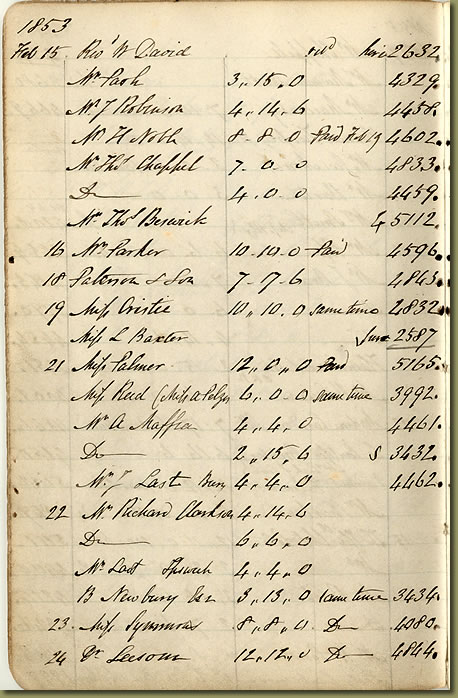 1853
Feb 15. Revd W David recd hire 2632.
Mr Cash 3,, 15,, 0 4329.
Mr J Robinson 4,, 14,, 6 4458.
Mr H Noble 8 - 8,, 0 Paid Feb 19 4602.
Mr Thos Chappel 7 - 0 - 0 4833.
Do 4,, 0 - 0 4459.
Mr Thos Berwick 5112.
16 Mr Parker 10 - 10 - 0 Paid 4596.
18 Paterson & Son 7 - 7 - 6 4843.
19 Miss Cristie 10,, 10,, 0 same time 4832.
Miss L Baxter 2587
21 Miss Palmer 12,, 0,, 0 Paid 5165.
Miss Reid (Miss A 6,, 0 - 0 same time 3992.
Mr A 4,, 4,, 0 4461.
Do 2,, 15,, 6 S 3432.
Mr J Last Bury 4,, 4,, 0 4462.
22 Mr Richard Clarkson 4,, 14,, 6
Do 6,, 6,, 0
Mr Last Ipswich 4,, 4,, 0
B Newbury Esq 3,, 13,, 0 same time 3434.
23. Miss Symmons 8,, 8,, 0 Do 4080.
24 Dr Leeson 12,, 12,, 0 Do 4844.